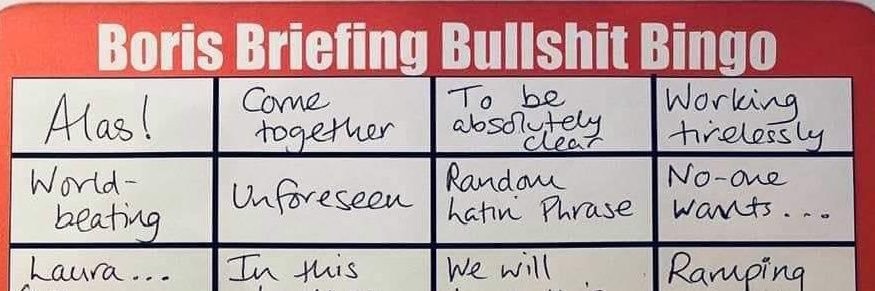 Boris Briefing Bullshit Bingo
Alas!
Come
together
To be
absolutely
clear
Working
tirelessly
World-
beating
Unforeseen
Random
Latin Phrase
No-one
wants...
Laura...
In this
We will
Ramping